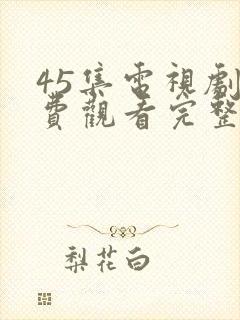 45集電視劇
費觀看完整
梨花白